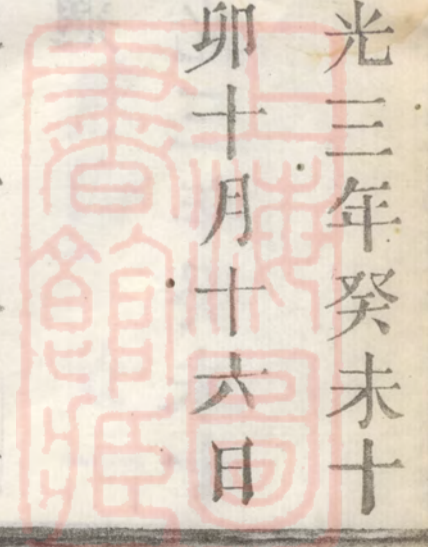 光三年癸未十
卯十月十六日
上海圖
書館藏